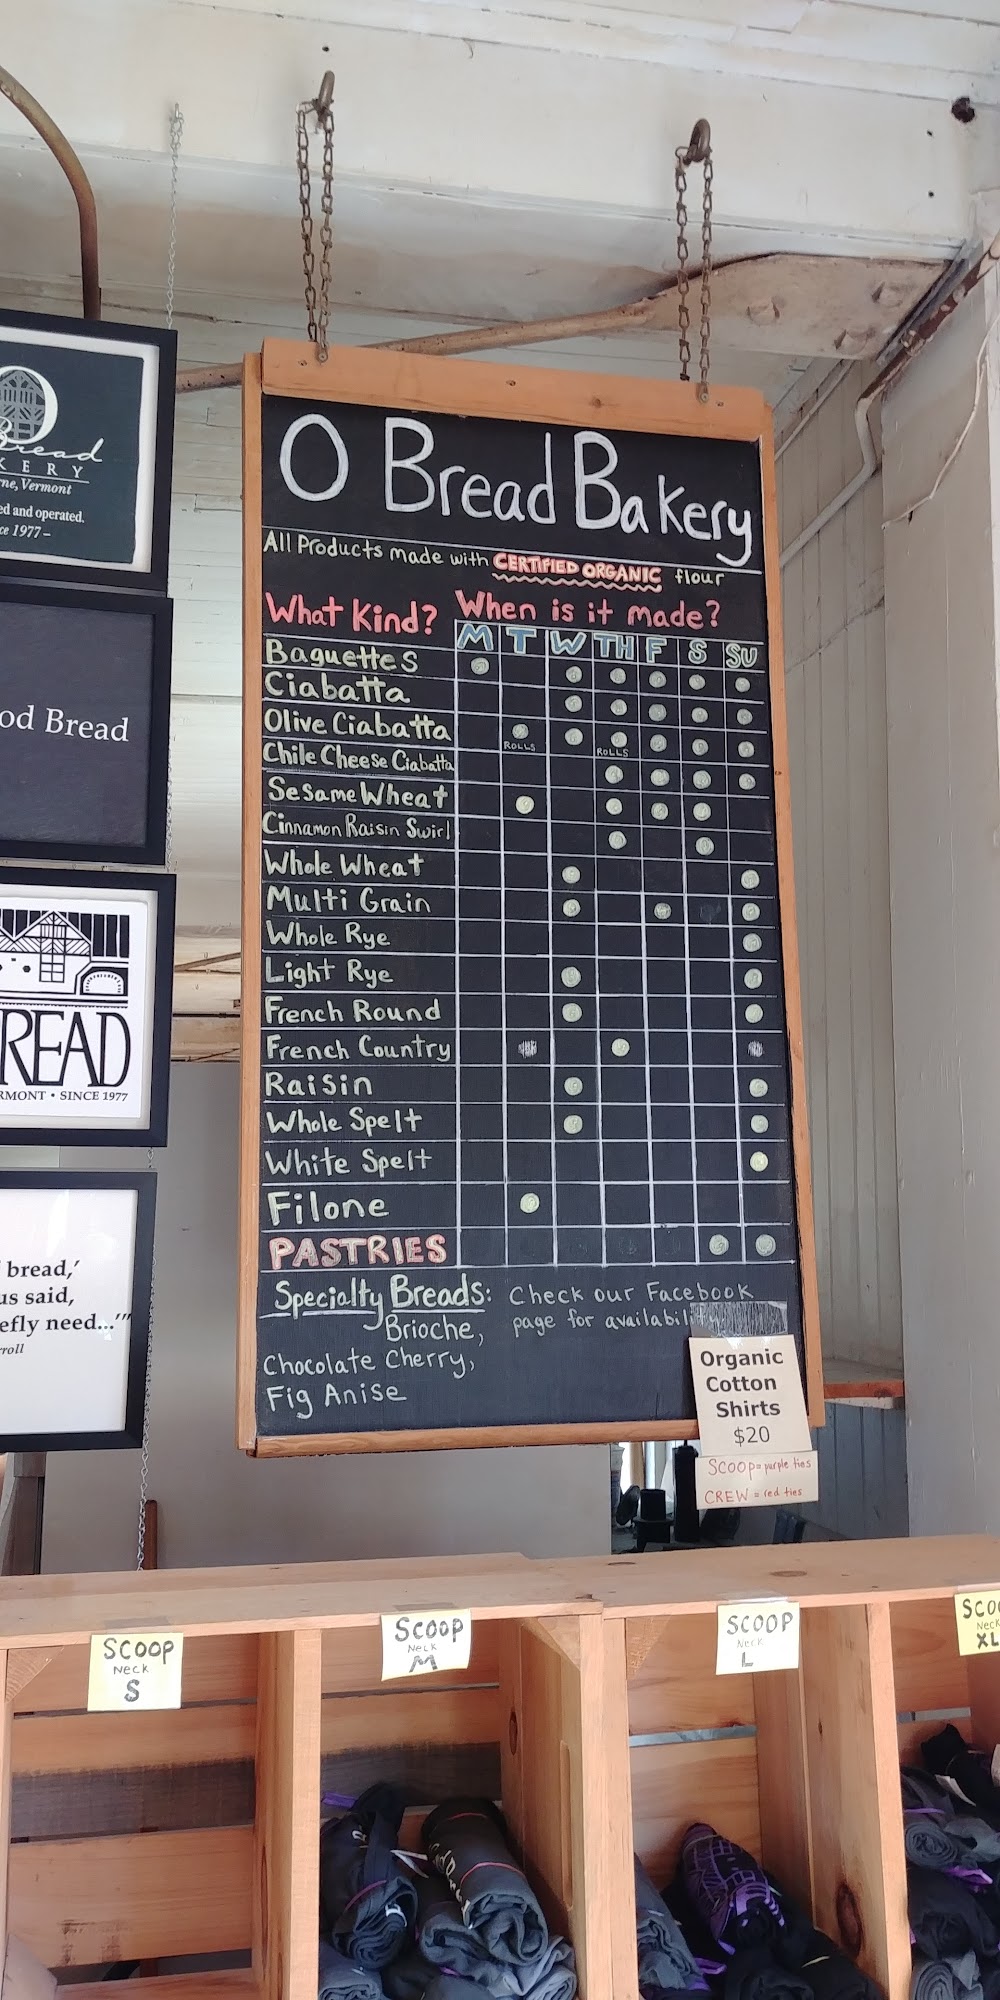 O Bread Bakery
All Products made with CERTIFIED ORGANIC flour
What Kind? When is it made?
M T W TH F S SU
Baguettes
Ciabatta
Olive Ciabatta
ROLLS ROLLS
Chile Cheese Ciabatta
Sesame Wheat
Cinnamon Raisin Swirl
Whole Wheat
Multi Grain
Whole Rye
Light Rye
French Round
French Country
Raisin
Whole Spelt
White Spelt
Filone
PASTRIES
Specialty Breads:
Brioche,
Chocolate Cherry,
Fig Anise
Check our Facebook
page for availabili
Organic
Cotton
Shirts
$20
SCOOP = purple ties
CREW = red ties
O
Bread
KERY
rne, Vermont
ed and operated.
ce 1977 –
od Bread
READ
RMONT • SINCE 1977
bread,'
us said,
efly need...'"
rroll
SCOOP
Neck
S
SCOOP
Neck
M
SCOOP
Neck
L
SCOO
Neck
XL